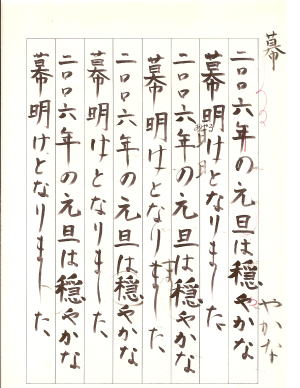 幕
やかな
二〇〇六年の元旦は穏やかな
幕明けとなりました
二〇〇六年の元旦は穏やかな
幕明けとなりました
二〇〇六年の元旦は穏やかな
幕明けとなりました
二〇〇六年の元旦は穏やかな
幕明けとなりました